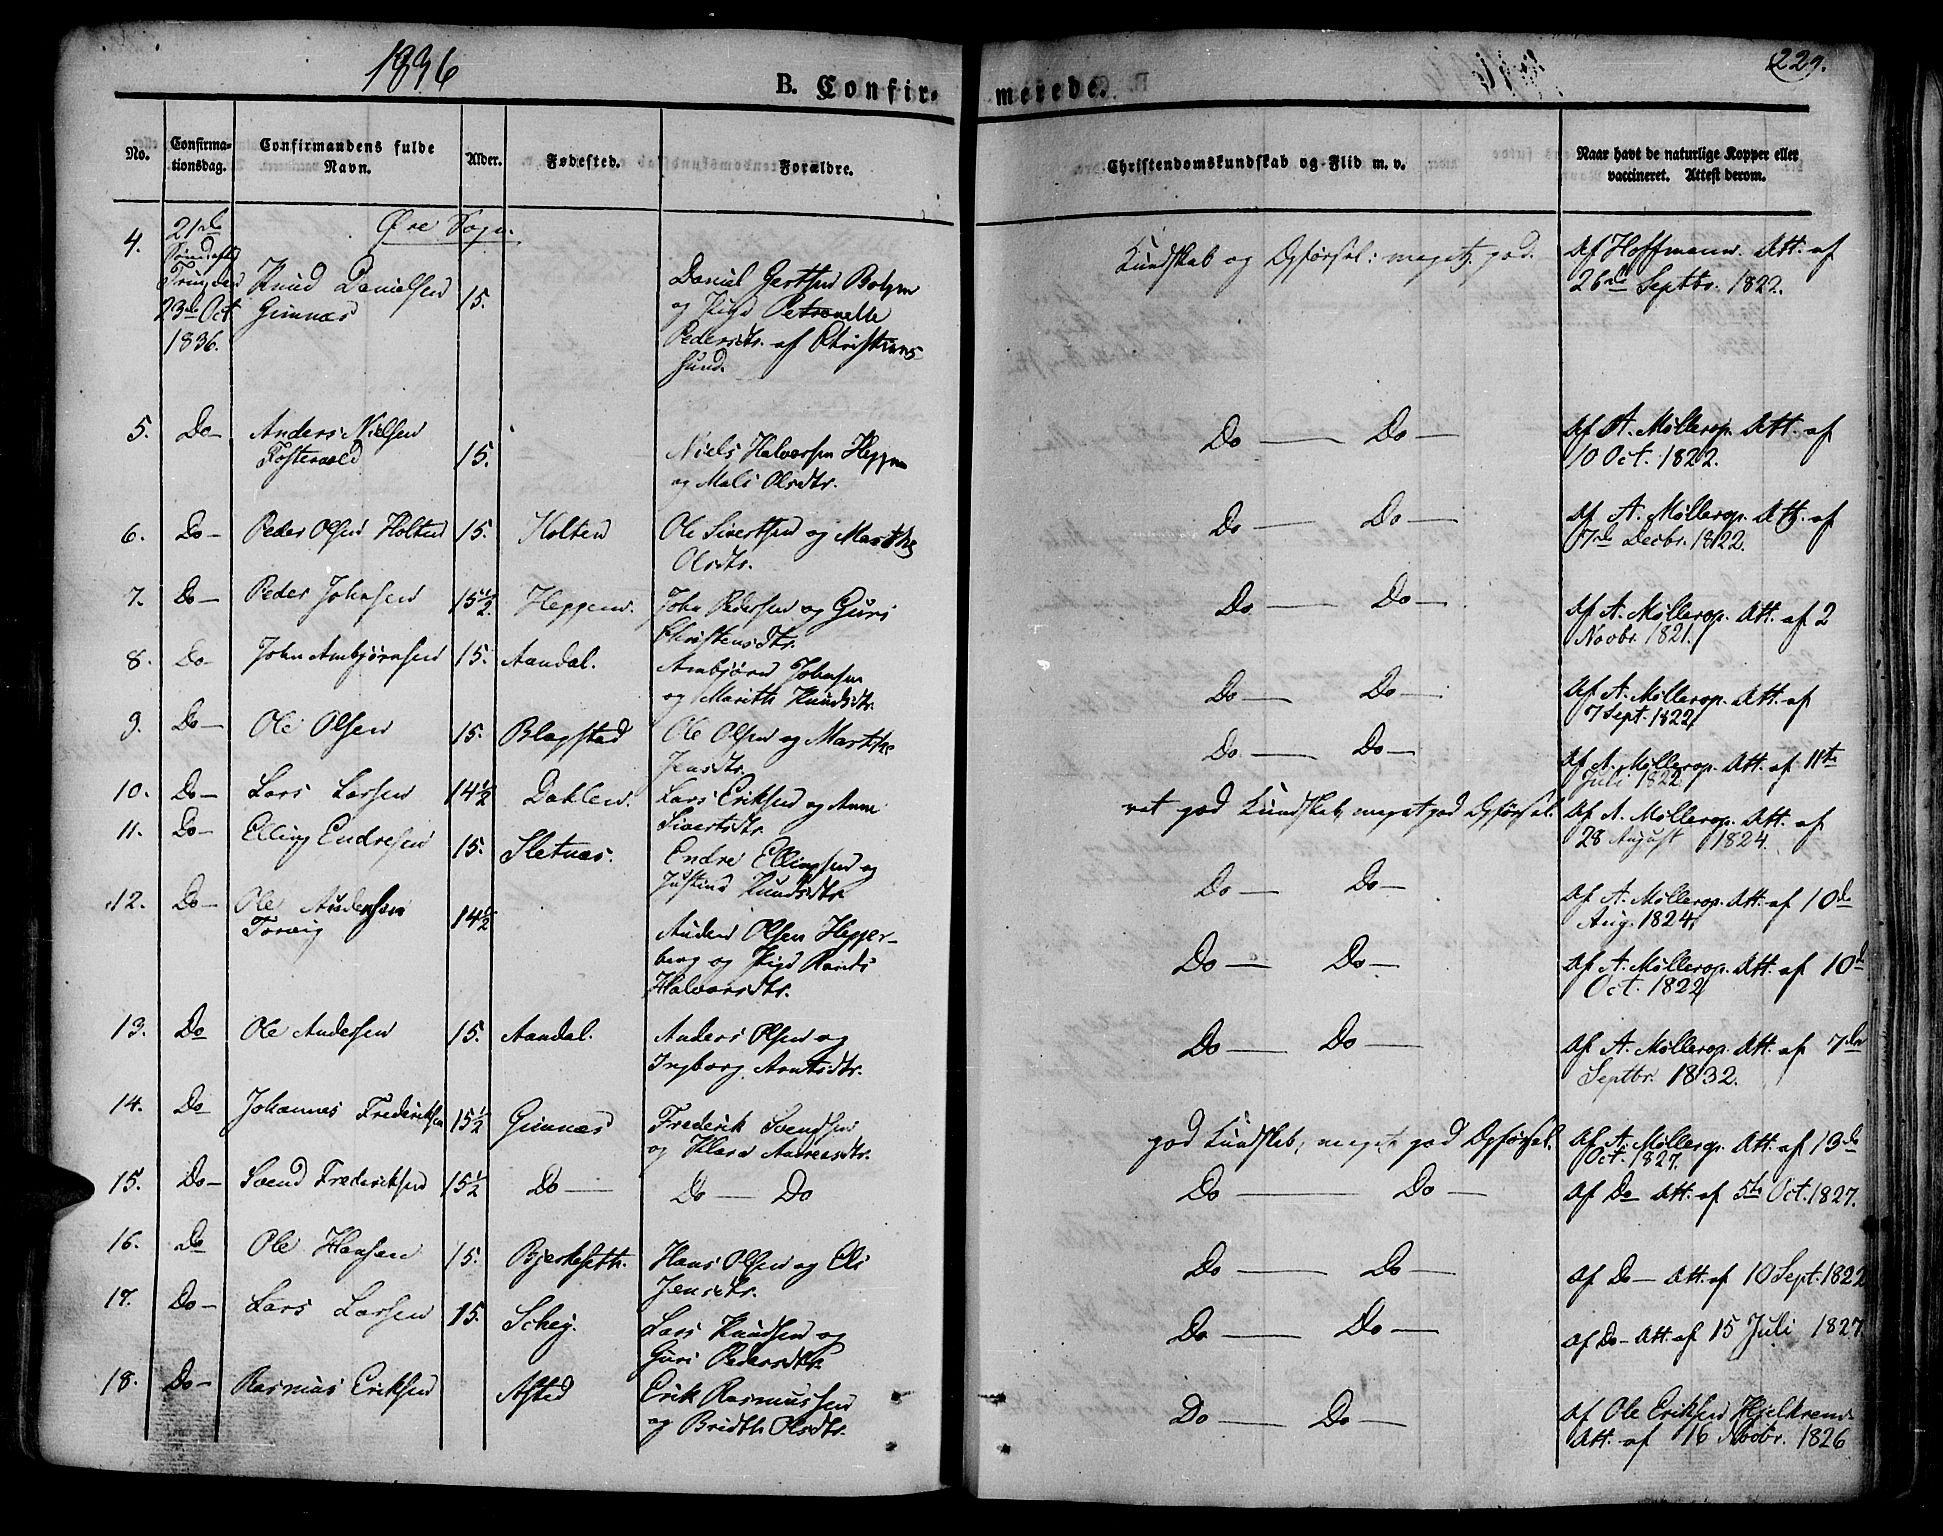 1836
229.
B. Confir-
merede.
No.
Confirma-
tionsdag.
Confirmandens fulde
Navn.
Alder.
Fødested.
Forældre.
Christendomskundskab og Flid m. v.
Naar havt de naturlige Kopper eller
vaccineret. Attest derom.
Øre Sogn.
4.
21de
23de Oct.
1836.
Knud Danielsen
Gimnæs
15.
Daniel Gertsen Bolgen
og Pige Petronelle
Pedersdtr. af Christians
sund.
Kundskab og Opførsel: meget god.
Af Hoffmann. Att. af
26de Septbr. 1822.
5. Do Anders Nielsen
Fostervold 15.
Niels Halvorsen Heggem
og Mali Olsdtr.
Do Do
Af A. Møllerop. Att. af
10 Oct. 1822.
6. Do Peder Olsen Holten 15. Holten Ole Sivertsen og Marithe
Olsdtr.
Do Do
Af A. Møllerop. Att. af
7de Decbr. 1822.
7. Do Peder Johnsen 15½ Heggem. John Pedersen og Guri
Christensdtr.
Do Do
Af A. Møllerop. Att. af 2
Novbr. 1821.
8. Do John Arnbjørnsen 15. Aandal. Arnbjørn Johnsen
og Marith Knudsdtr.
Do Do
Af A. Møllerop. Att. af
7 Sept. 1822
9. Do Ole Olsen 15. Blagstad Ole Olsen og Marithe
Jensdtr.
Do Do
Af A. Møllerop. Att. af 11te
Juli 1822.
10. Do Lars Larsen 14½ Dahlen. Lars Eriksen og Anne
Sivertsdtr.
ret god Kundskab, meget god Opførsel.
Af A. Møllerop. Att. af
28 August 1824.
11. Do Elling Endresen 15. Sletnæs. Endre Ellingsen og
Justind Knudsdtr.
Do Do
Af A. Møllerop. Att. af 10de
Aug. 1824.
12. Do Ole Andersen
Torvig 14½
Anders Olsen Hegger-
berg og Pige Rands
Halvorsdtr.
Do Do
Af A. Møllerop. Att. af 10de
Oct. 1822
13. Do Ole Andersen 15. Aandal. Anders Olsen og
Ingborg Arntsdtr.
Do Do
Af A. Møllerop. Att. af 7de
Septbr. 1832.
14. Do Johannes Frederiksen 15½ Gimnæs Frederik Svendsen
og Klara Andreasdtr.
god Kundskab, meget god Opførsel.
Af A. Møllerop. Att. af 13de
Oct. 1827.
15. Do Svend Frederiksen 15½ Do Do Do
Do Do
Af Do Att. af 5te Oct. 1827.
16. Do Ole Hansen 15. Bjerkeseth. Hans Olsen og Eli
Jensdtr.
Do Do
Af Do Att. af 10 Sept. 1822
17. Do Lars Larsen 15. Scheg. Lars Knudsen og
Guri Pedersdtr.
Do Do
Af Do Att. af 15 Juli 1827.
18. Do Rasmus Eriksen Afsted Erik Rasmussen
og Brith Olsdtr.
Do Do
Af Ole Eriksen Hjelkrem
Att. af 16 Novbr. 1826